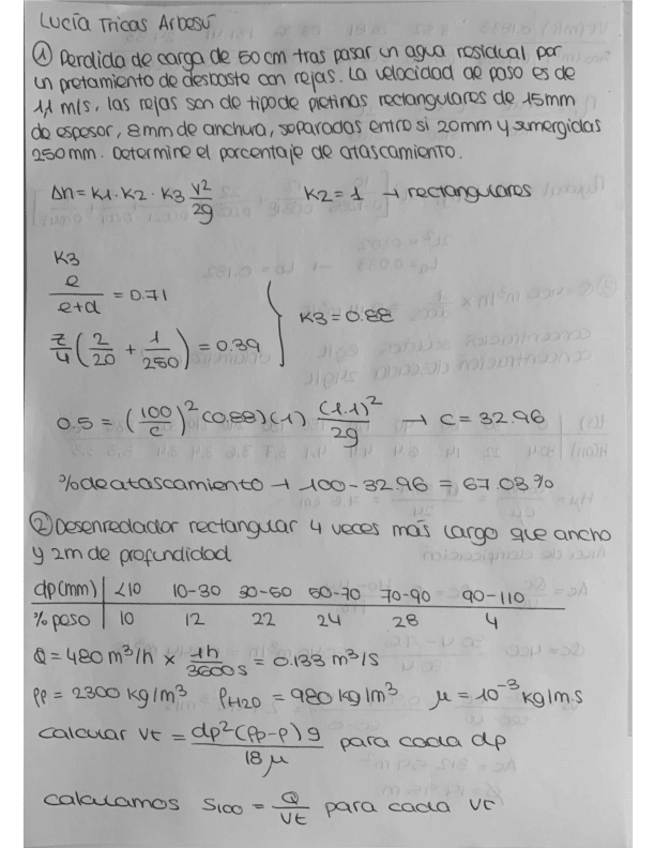 Lucía Tricas Arbesú
① Perdida de carga de 50cm tras pasar un agua residual por
un pretamiento de desbaste con rejas. La velocidad de paso es de
1,1 m/s, las rejas son de tipo de pletinas rectangulares de 15mm
de espesor, 8mm de anchura, separadas entre si 20mm y sumergidas
250mm. Determine el porcentaje de atascamiento.
Δh = K1·K2·K3 V²/2g K2 = 1 → rectangulares
K3
e/(e+d) = 0.71
z/4 (2/20 + 1/250) = 0.39 } K3 = 0.88
0.5 = (100/c)² (0.88) (1) (1.1)²/2g → c = 32.96
% de atascamiento → 100 - 32.96 = 67.03%
② Desenredador rectangular 4 veces más largo que ancho
y 2m de profundidad
dp(mm) <10 10-30 30-50 50-70 70-90 90-110
% peso 10 12 22 24 28 4
Q = 480 m³/h × 1h/3600s = 0.133 m³/s
ρp = 2300 kg/m³ ρH2O = 980 kg/m³ μ = 10⁻³ kg/m.s
calcular vt = dp²(ρp-ρ)g/18μ para cada dp
calculamos S100 = Q/vt para cada vt